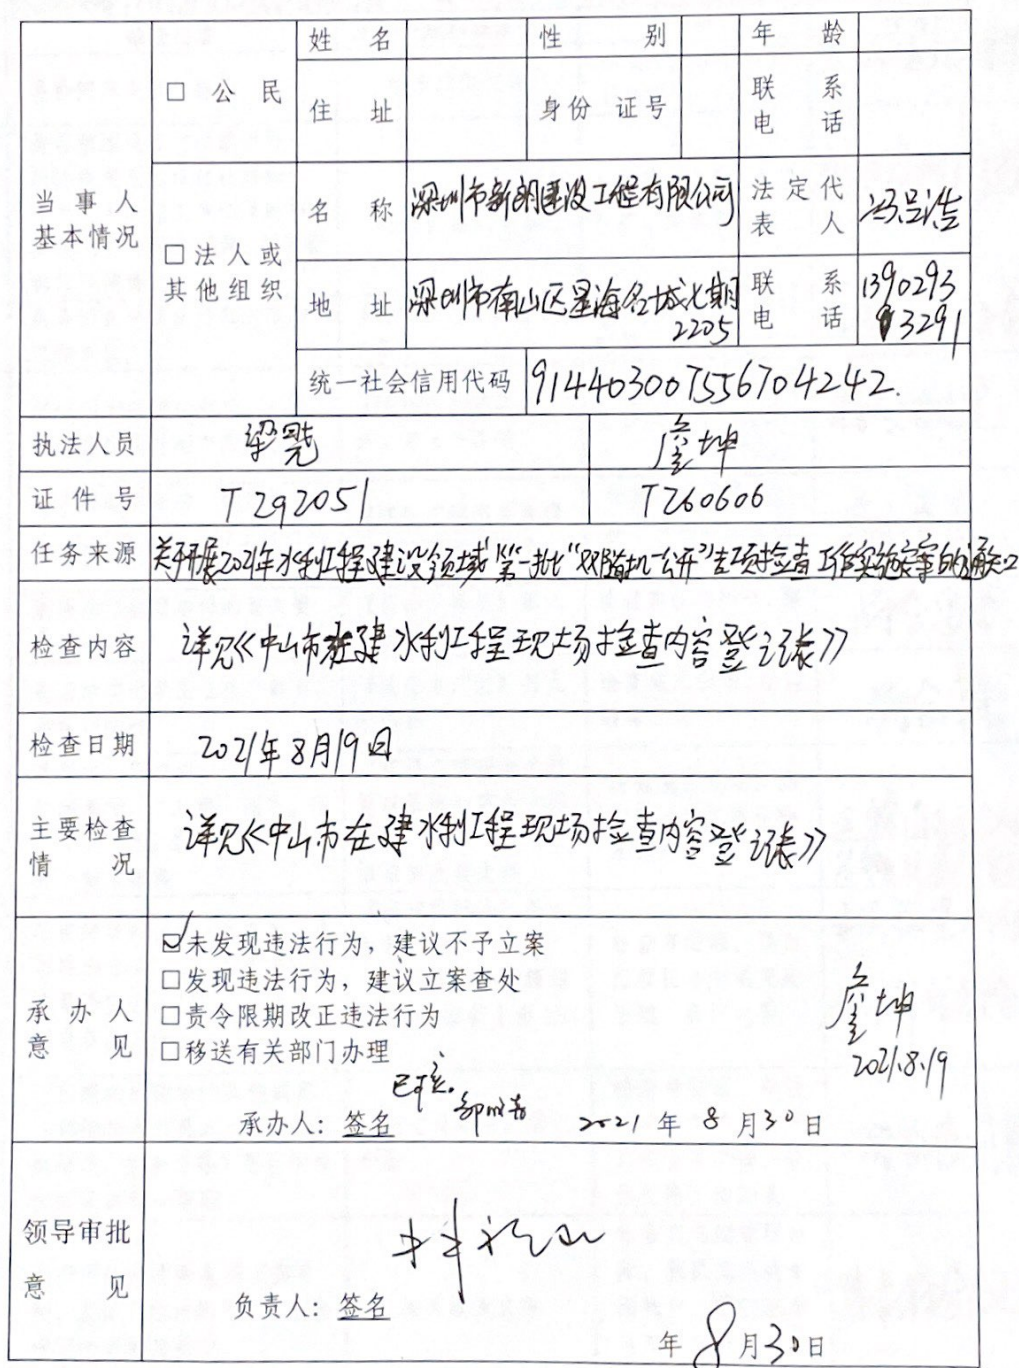 姓名 性别 年龄
□公民
住址 身份证号 联系电话
当事人基本情况
名称 深圳市新朗建设工程有限公司 法定代表人
□法人或其他组织
地址 深圳市南山区星海名城七期2205 联系电话 13902933291
统一社会信用代码 914403007556704242.
执法人员
证件号 T292051 T260606
任务来源 关于开展2021年水利工程建设领域“第一批“双随机一公开”专项检查工作实施方案的通知
检查内容 详见《中山市在建水利工程现场检查内容登记表》
检查日期 2021年8月19日
主要检查情况 详见《中山市在建水利工程现场检查内容登记表》
☑未发现违法行为，建议不予立案
□发现违法行为，建议立案查处
承办人意见
□责令限期改正违法行为
□移送有关部门办理
2021.8.19
已核.
承办人：签名 2021年8月30日
领导审批意见
负责人：签名
年8月30日